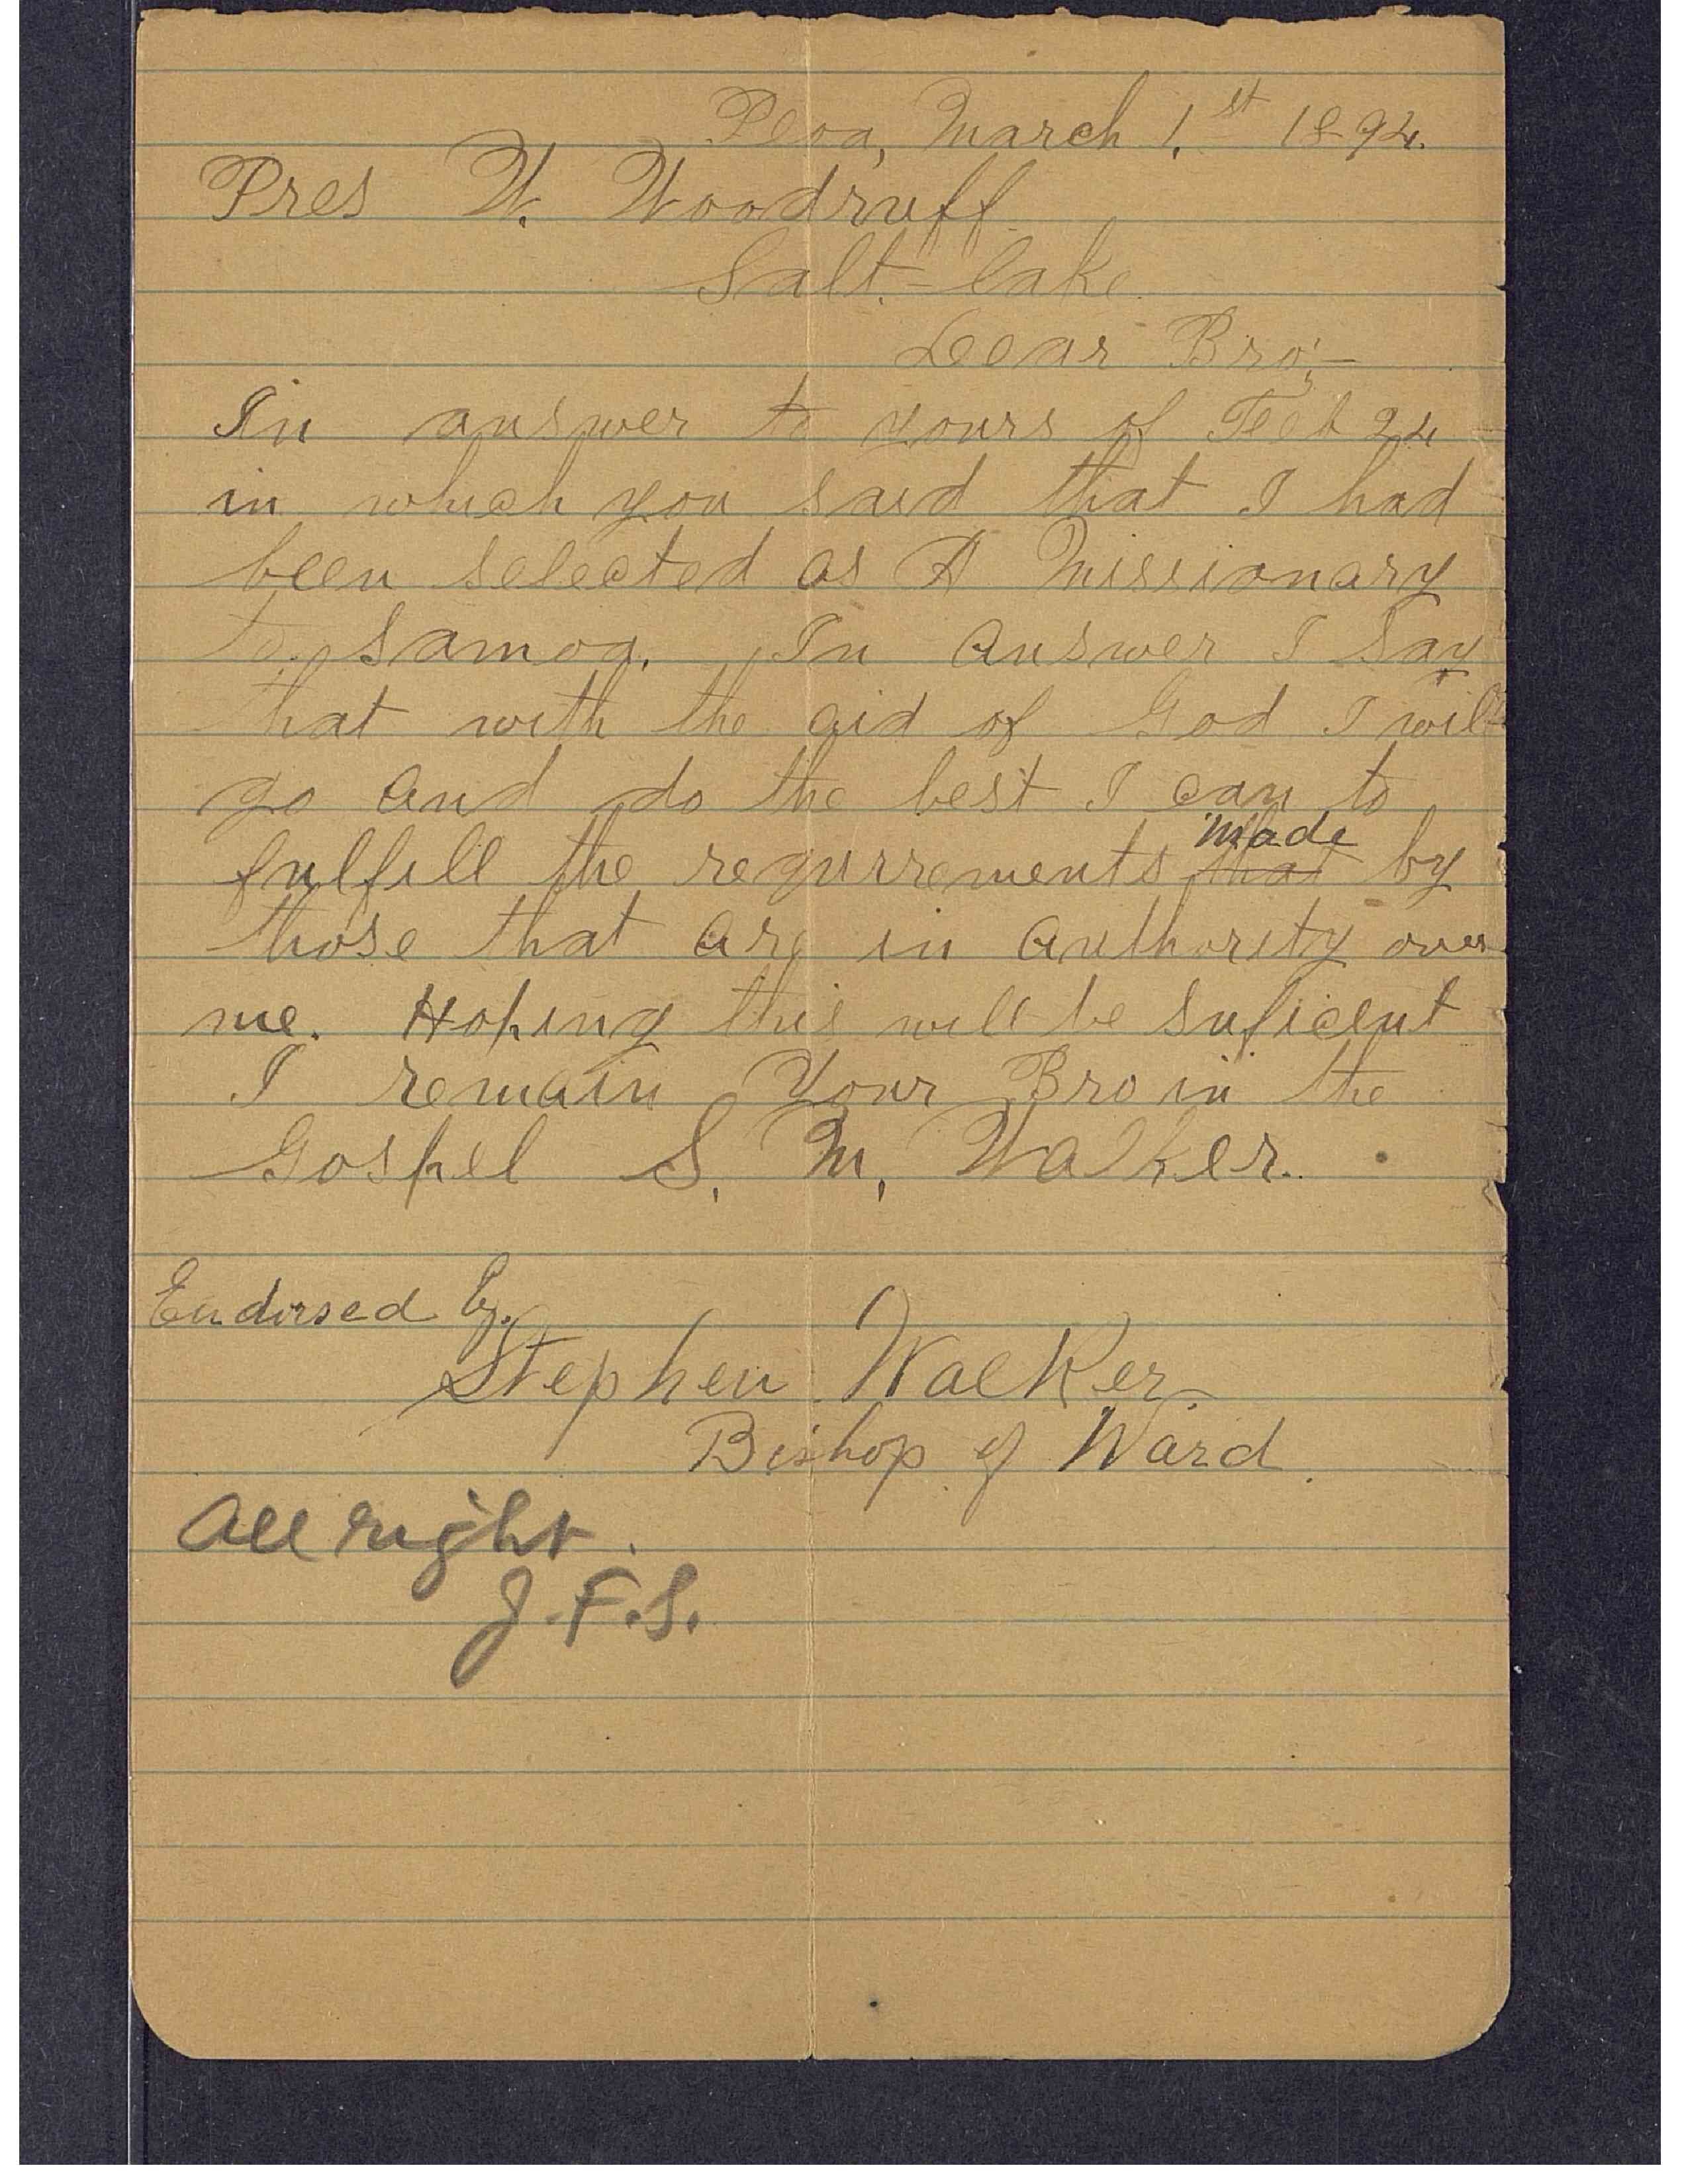 Peoa, March 1.st 1894.
Pres W. Woodruff
Salt-lake
Dear Bro;—
In answer to yours of Feb 24
in which you said that I had
been selected as A Missionary
to Samoa. In answer I Say
that with the aid of God I will
go and do the best I can to
made
fulfill the requirrements that by
those that are in authority over
me. Hoping this will be suficent
I remain Your Bro in the
Gospel S. M. Walker.
Endorsed by.
Stephen Walker
Bishop of Ward.
All right.
J.F.S.